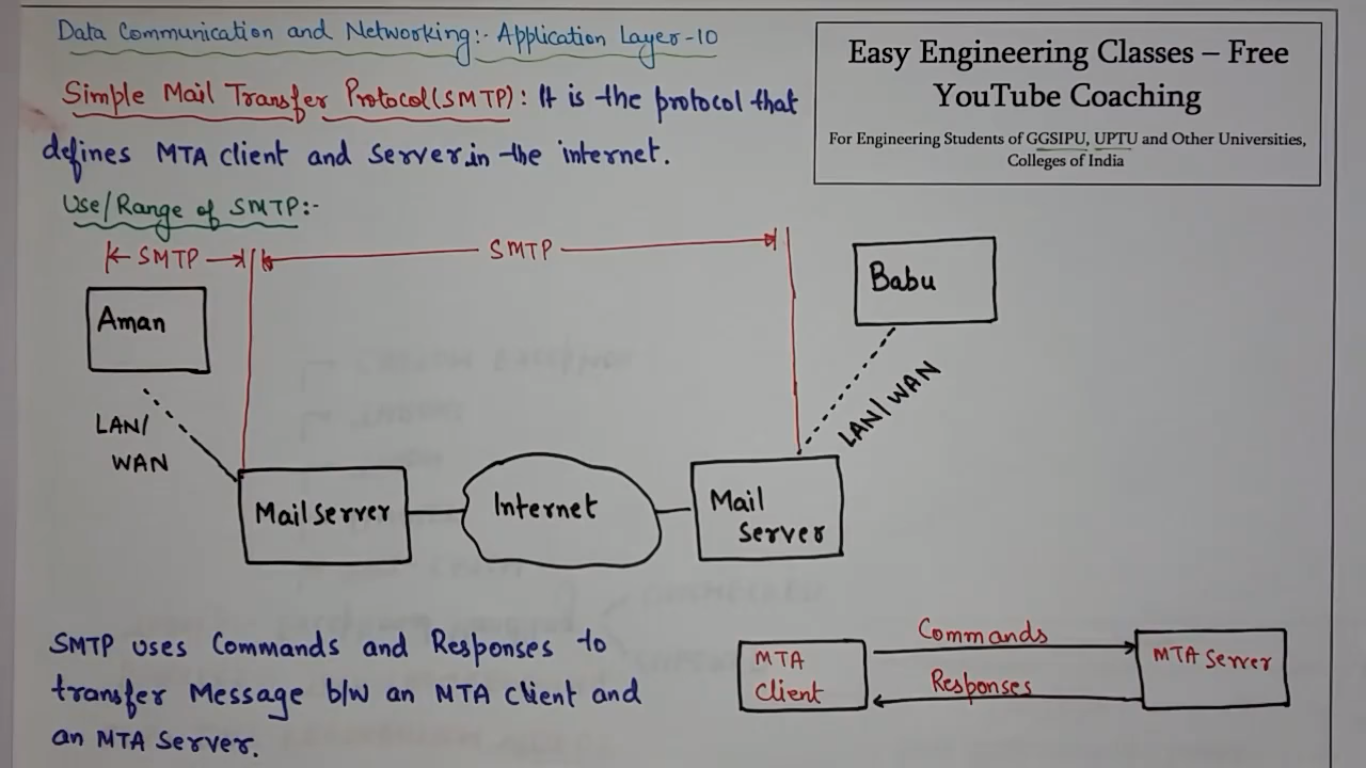 Data Communication and Networking:- Application Layer-10
Easy Engineering Classes – Free
YouTube Coaching
For Engineering Students of GGSIPU, UPTU and Other Universities,
Colleges of India
Simple Mail Transfer Protocol(SMTP): It is the protocol that
defines MTA client and server in the internet.
Use/Range of SMTP:-
SMTP
SMTP
Aman
Babu
LAN/
WAN
LAN/WAN
Mail server
Internet
Mail
Server
SMTP uses Commands and Responses to
transfer Message b/w an MTA Client and
an MTA Server.
MTA
Client
Commands
Responses
MTA Server